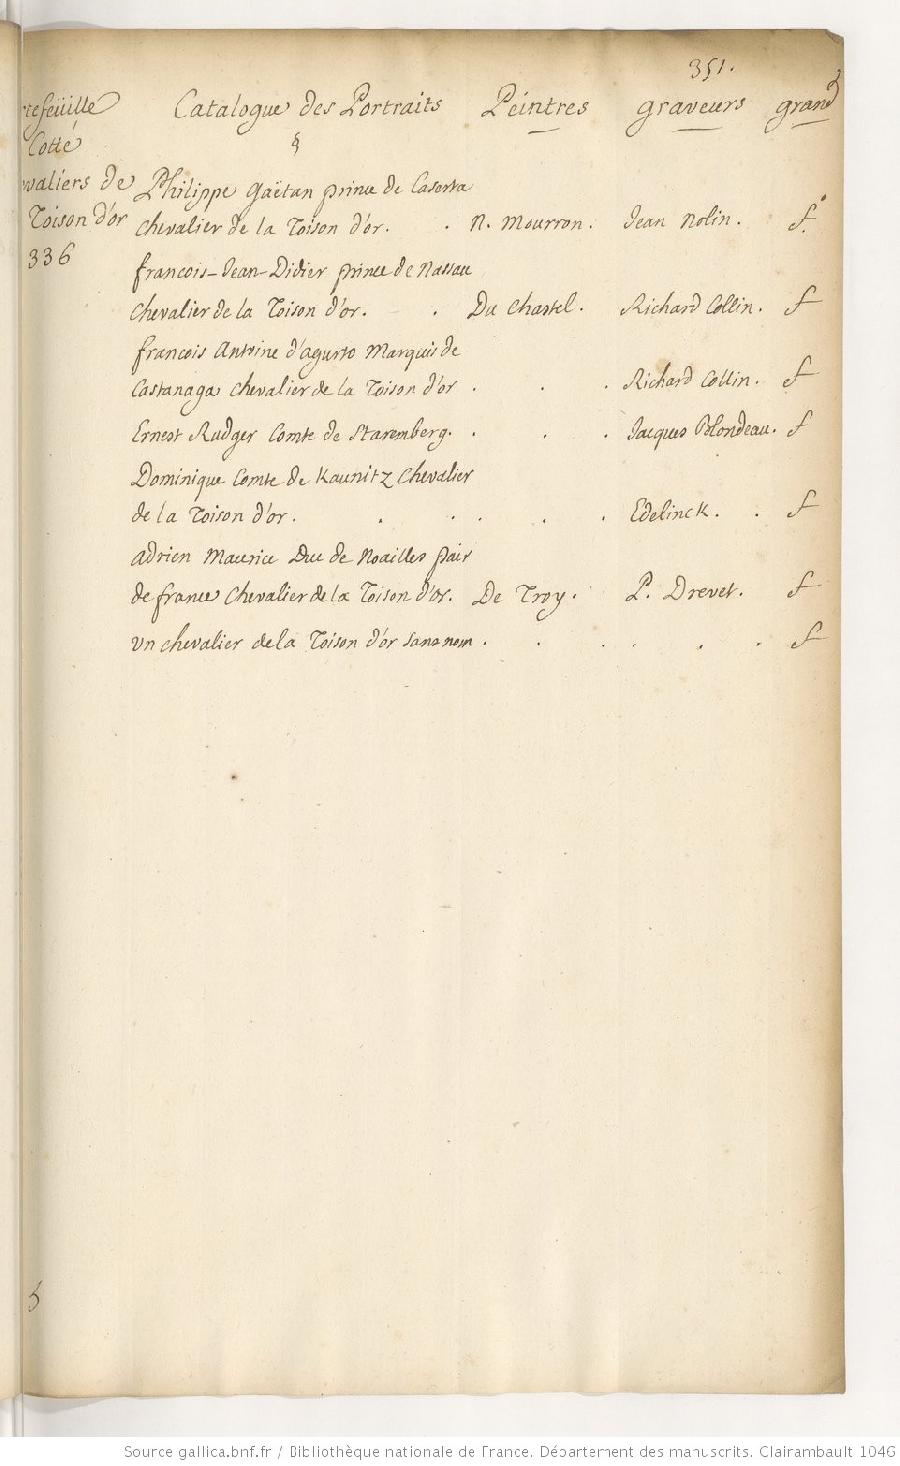 351.
tefeüille Catalogue des Portraits Peintres graveurs grand
Cotté §
valiers de Philippe Gaëtan prince de Caserta
Toison d'or chevalier de la Toison d'or. . N. Mourron. Jean Nolin. f.°
336
francois-Jean-Didier prince de Nassau
chevalier de la Toison d'or. . Du Chastel. Richard Collin. f
francois Antoine d'agurto Marquis de
Castanaga chevalier de la Toison d'or . . . Richard Collin. f
Ernest Rudger Comte de Staremberg. . . . Jacques Blondeau. f
Dominique Comte de Kaunitz Chevalier
de la Toison d'or. . . . . . Edelinck. . f
adrien Maurice Duc de Noailles pair
de france Chevalier de la Toison d'or. De Troy. P. Drevet. f
un chevalier de la Toison d'or sans nom . . . . . . f
Source gallica.bnf.fr / Bibliothèque nationale de France. Département des manuscrits. Clairambault 1046